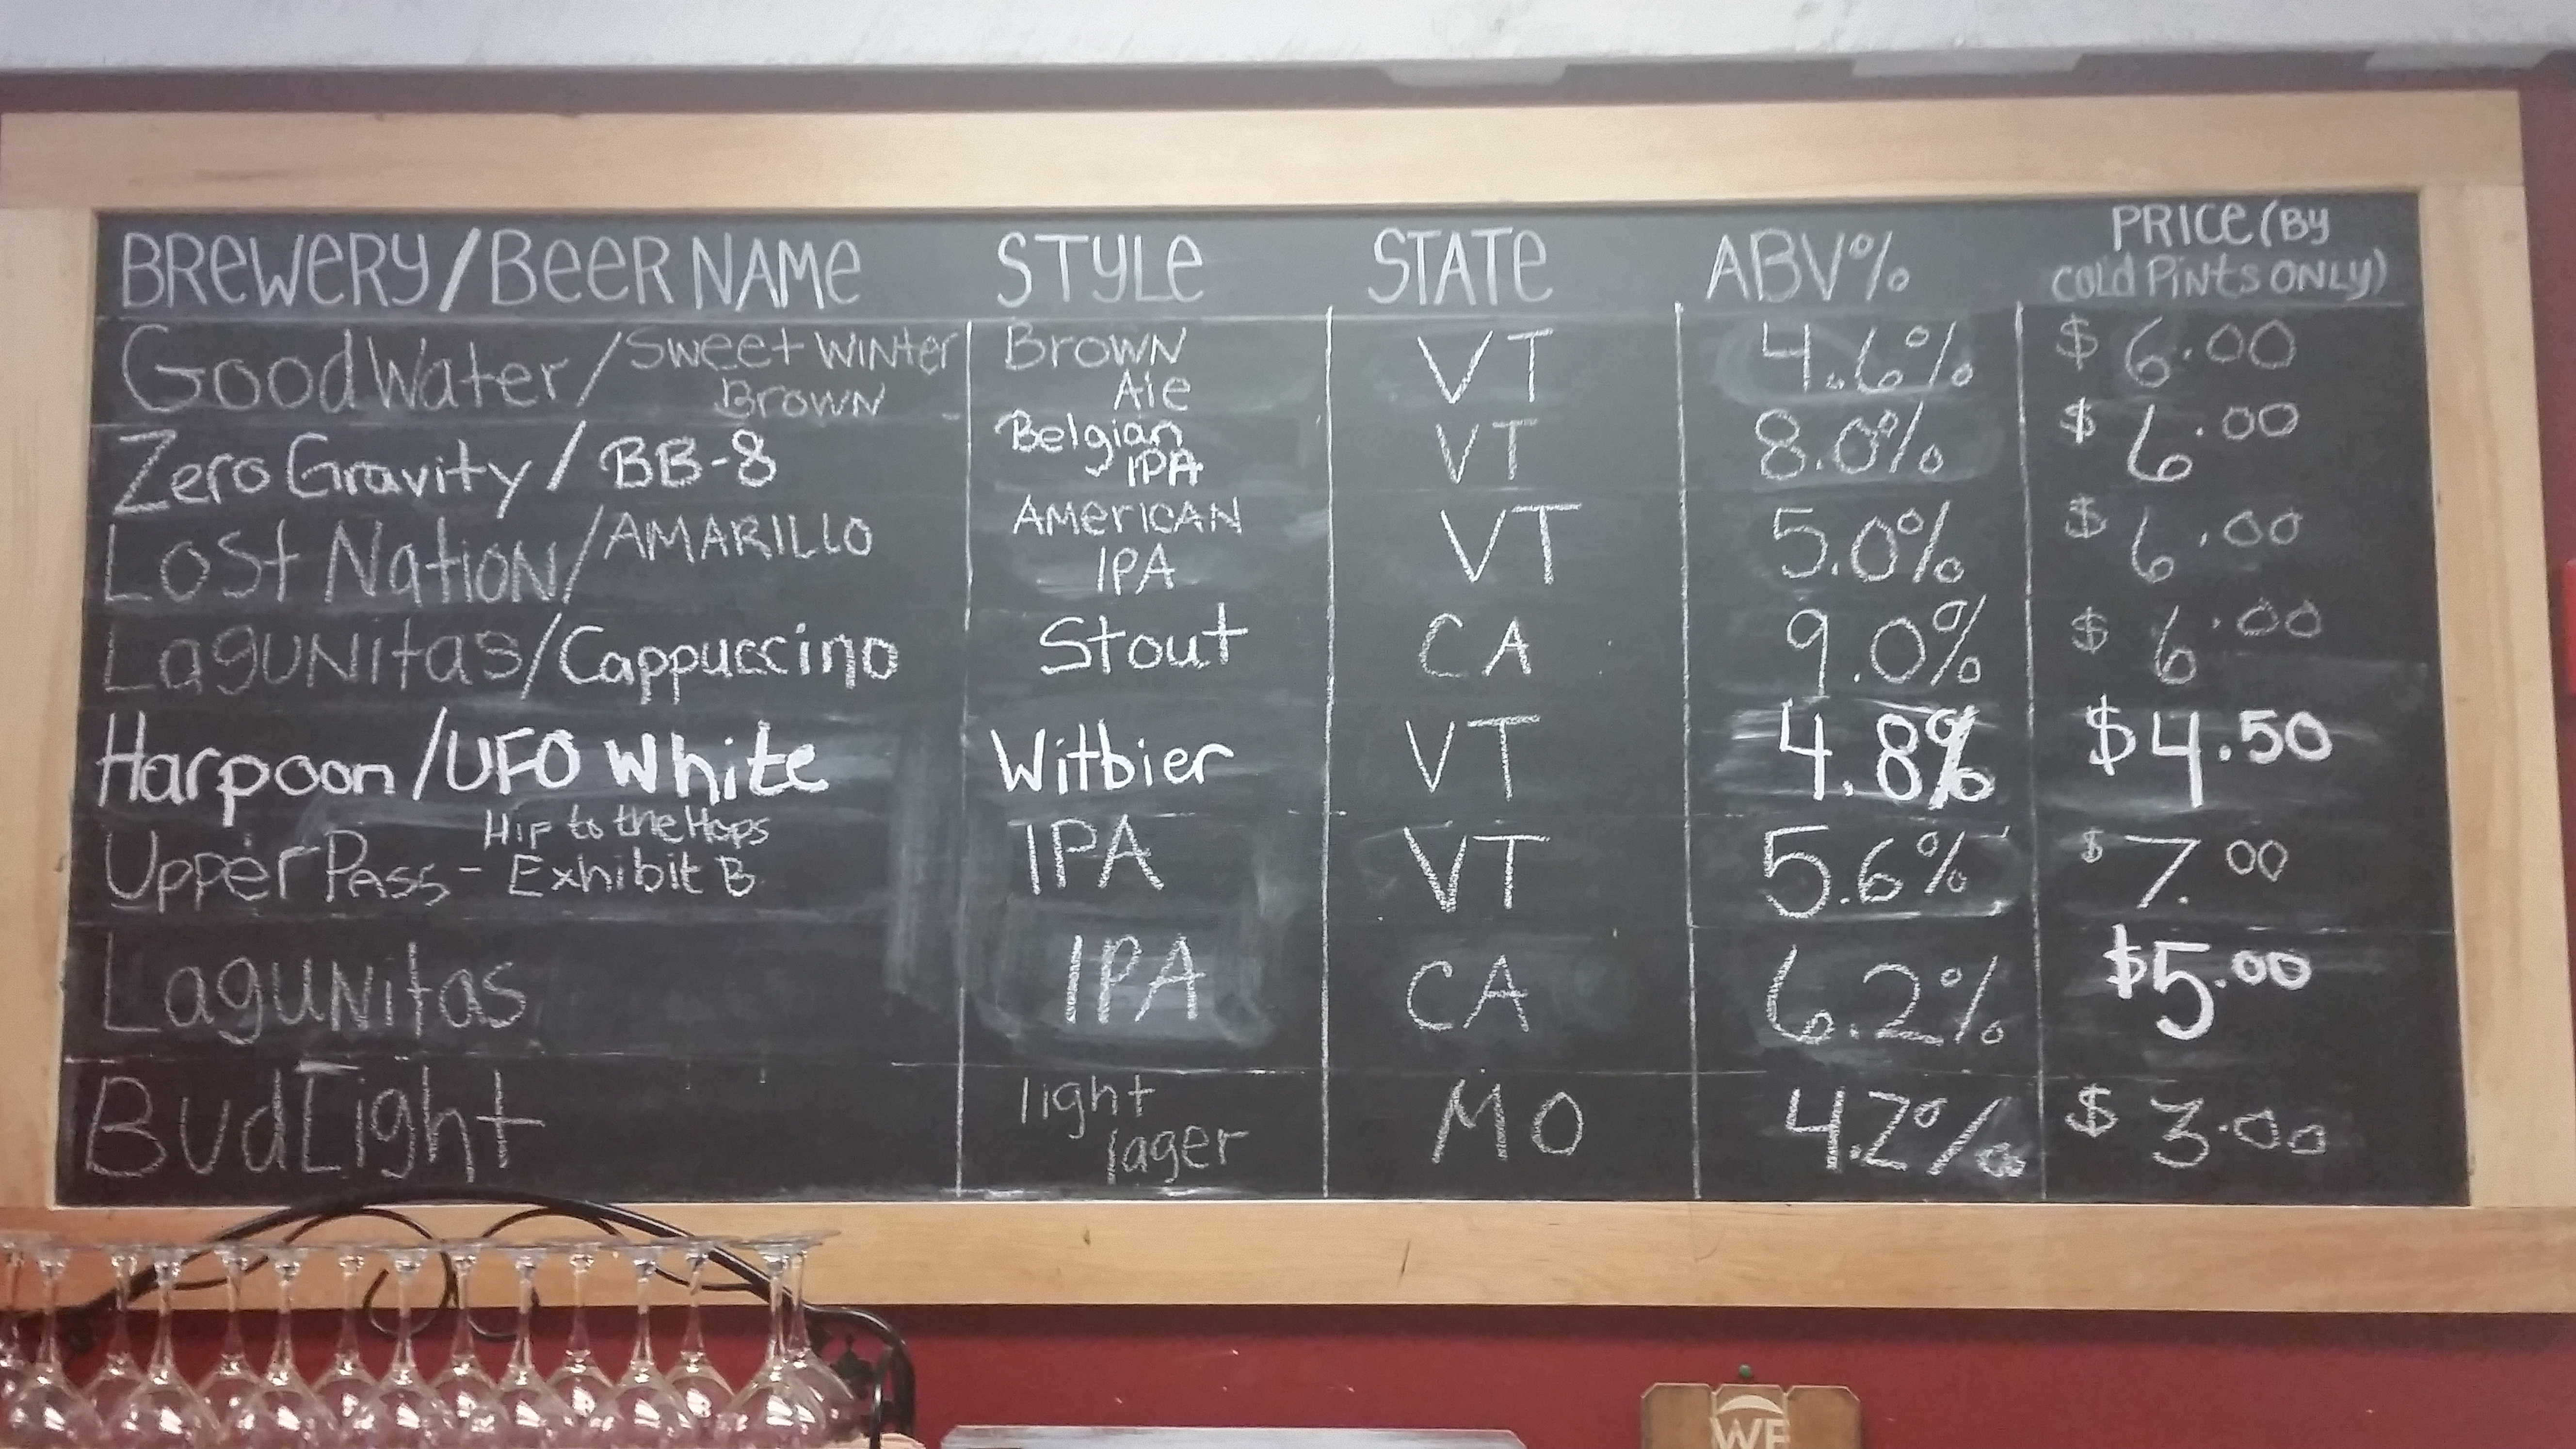 BREWERY/BEER NAME STYLE STATE ABV% PRICE (BY
COLD PINTS ONLY)
Good Water/Sweet Winter Brown VT 4.6% $6.00
Brown Ale
Zero Gravity/BB-8 Belgian VT 8.0% $6.00
IPA
Lost Nation/AMARILLO AMERICAN VT 5.0% $6.00
IPA
Lagunitas/Cappuccino Stout CA 9.0% $6.00
Harpoon/UFO White Witbier VT 4.8% $4.50
Hip to the Hops
Upper Pass - Exhibit B IPA VT 5.6% $7.00
Lagunitas IPA CA 6.2% $5.00
Bud Light light MO 4.2% $3.00
lager
WE